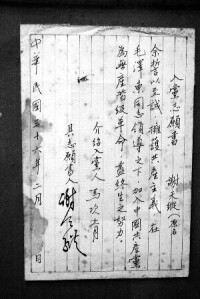 入黨志願書　謝未瑕（原名
余哲以至誠，擁護共產主義，在
毛澤東同志領導之下加入中國共產黨
為無產階級革命，盡終生之努力。
介紹入黨人　馬次月
具志願書
中華民國三十六年二月　日